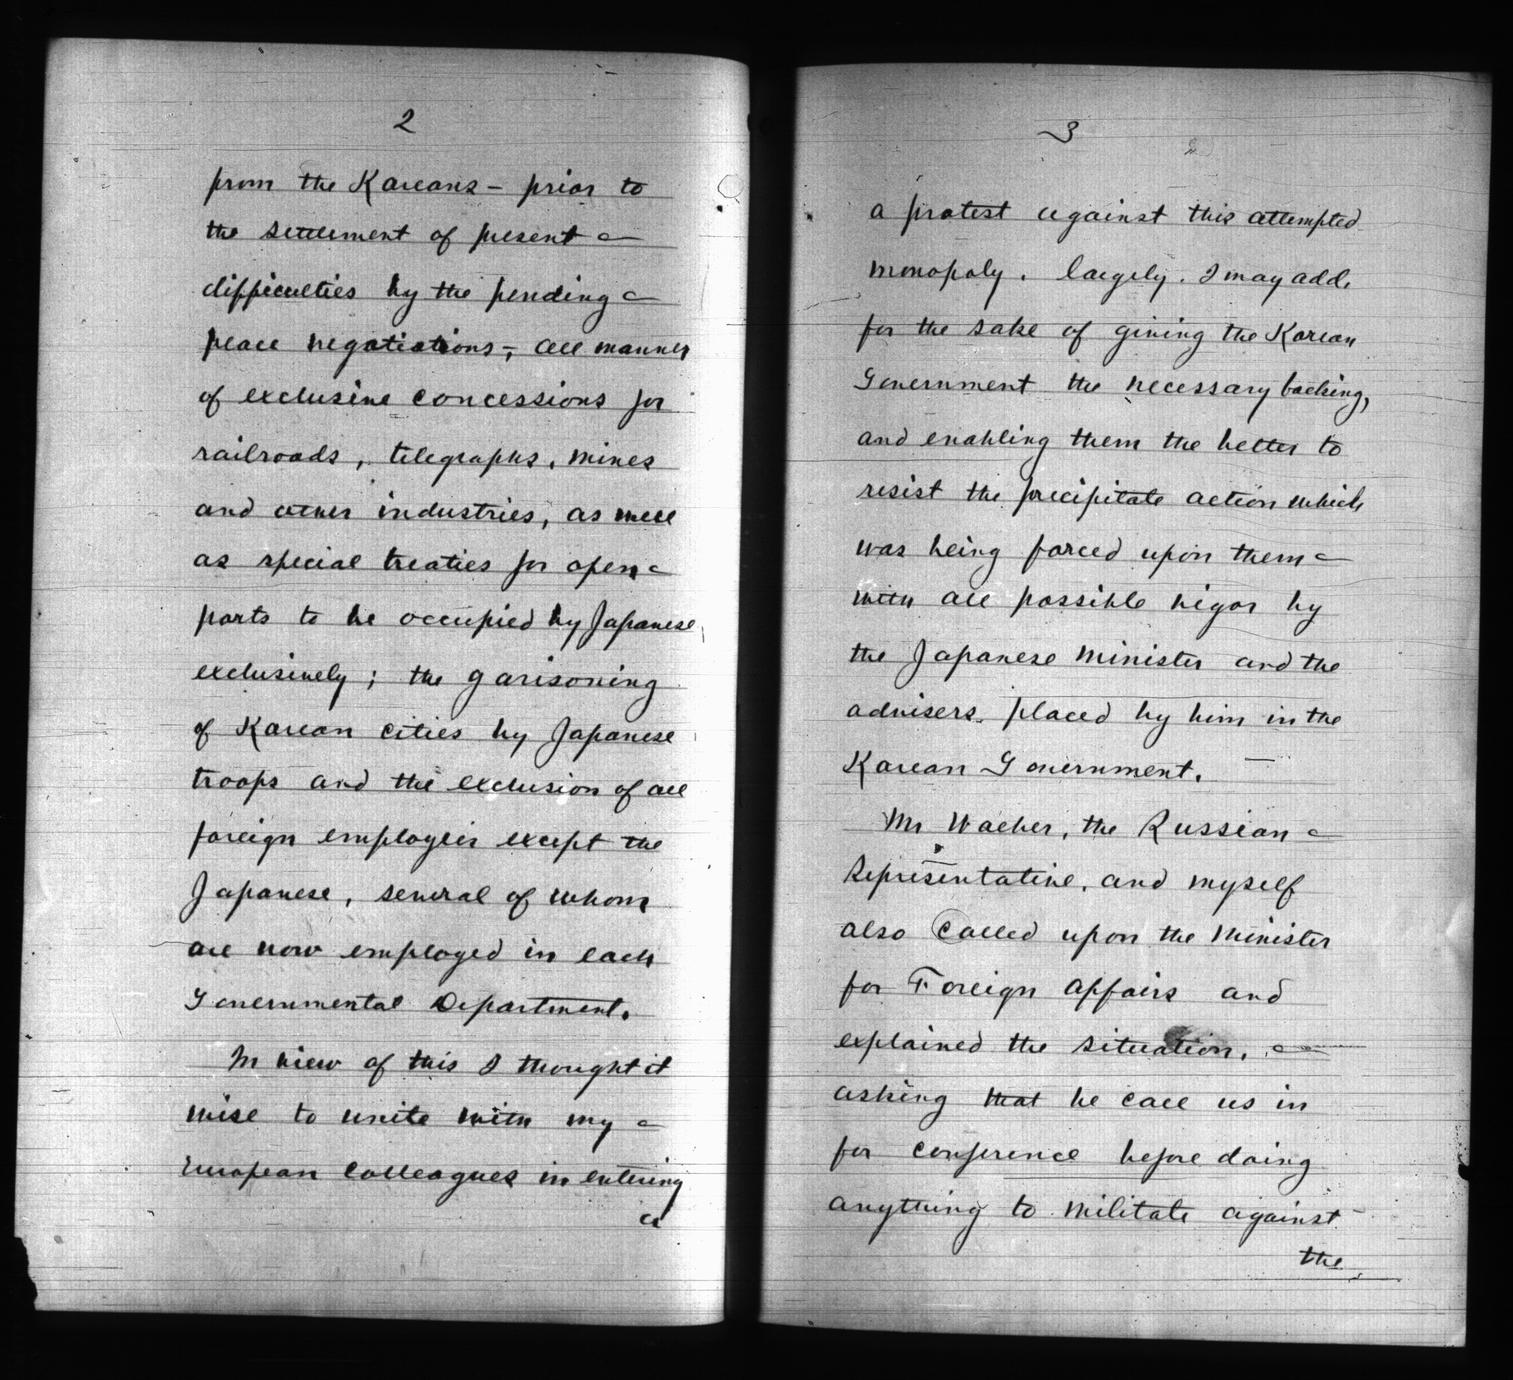 2
from the Koreans – prior to
the settlement of present –
difficulties by the pending –
peace negotiations –, all manner
of exclusive concessions for
railroads, telegraphs, mines
and other industries, as well
as special treaties for open –
ports to be occupied by Japanese
exclusively; the garisoning
of Korean cities by Japanese
troops and the exclusion of all
foreign employeis except the
Japanese, several of whom
are now employed in each
Governmental Department.
In view of this I thought it
wise to unite with my –
European Colleagues in entering
a
3
a protest against this attempted
monopoly. largely. I may add,
for the sake of giving the Korean
Government the necessary backing,
and enabling them the better to
resist the precipitate action which
was being forced upon them –
with all possible vigor by
the Japanese Minister and the
advisers. placed by him in the
Korean Government. —
Mr Waeber, the Russian –
Representative, and myself
also Called upon the Minister
for Foreign Affairs and
explained the situation, –
asking that he call us in
for conference before doing
anything to militate against
the